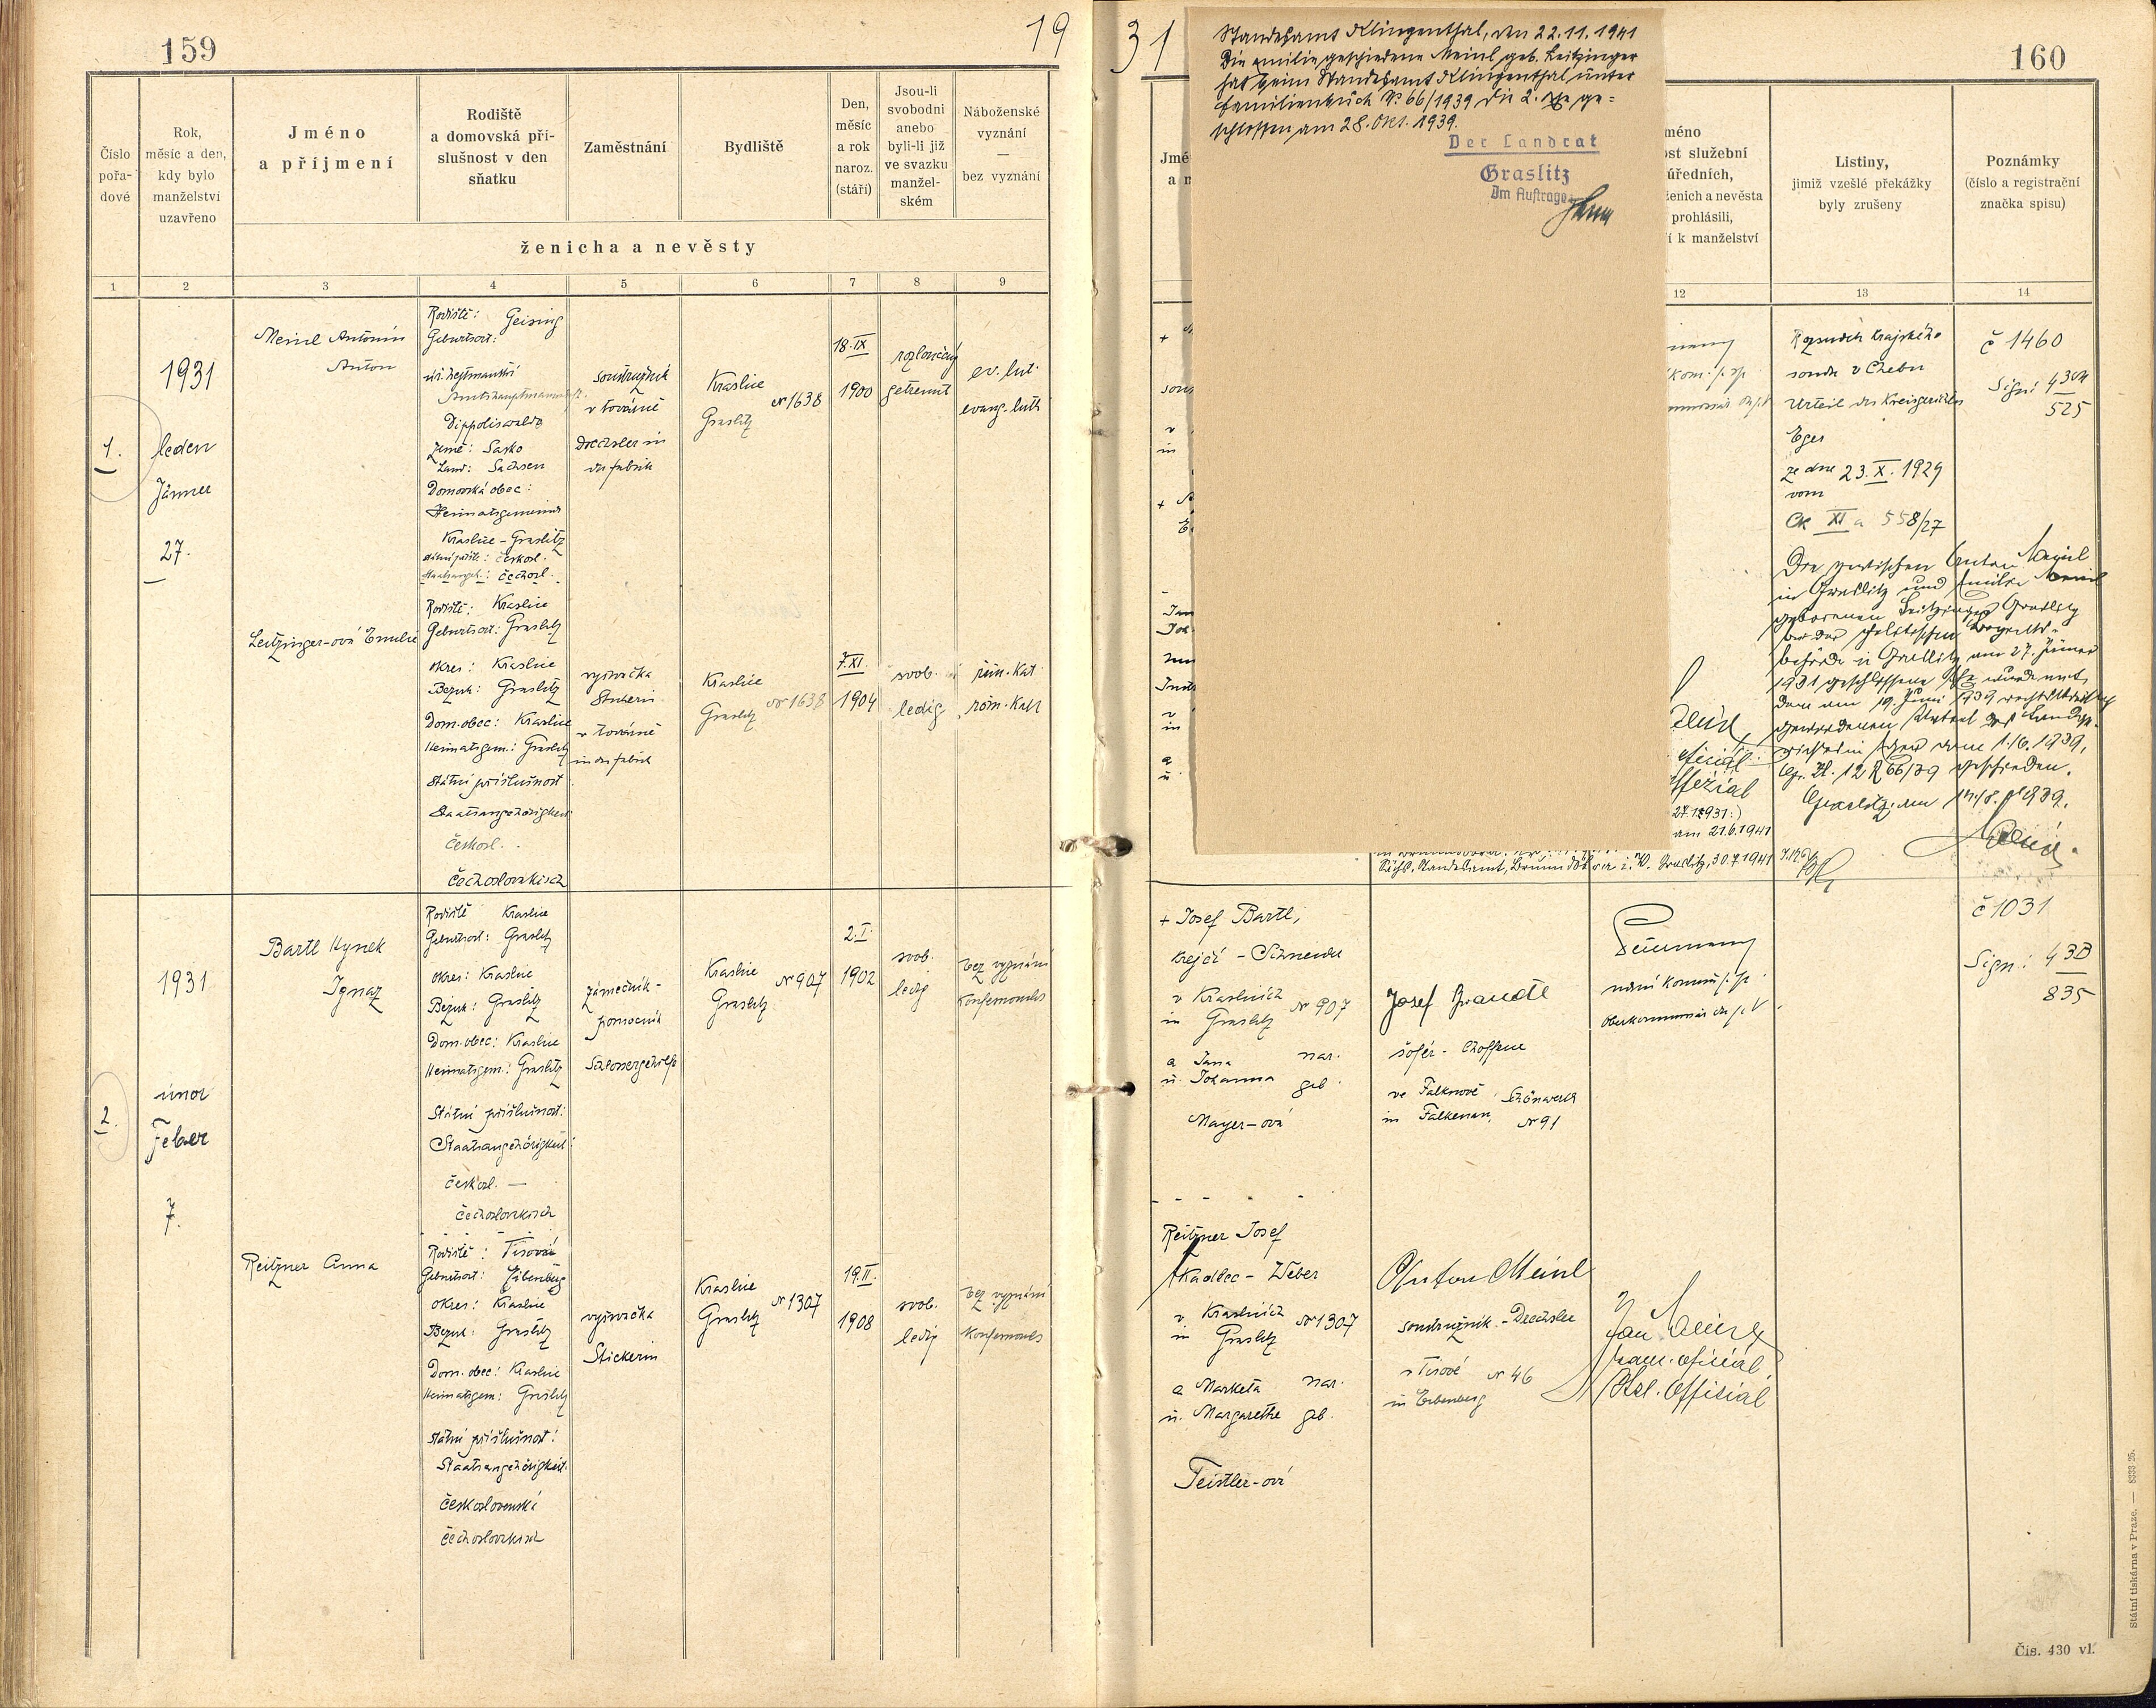 159
19
31
160
Standesamt Klingenthal, den 22.11.1941
Die Emilie geschiedene Meinl geb. Leitzinger
hat beim Standesamt Klingenthal unter
Familienbuch No 66/1939 die 2. Ehe ge=
schlossen am 28. Okt. 1939.
Der Landrat
Graslitz
Im Auftrage
Číslo
pořa-
dové
Rok,
měsíc a den,
kdy bylo
manželství
uzavřeno
Jméno
a příjmení
Rodiště
a domovská pří-
slušnost v den
sňatku
Zaměstnání
Bydliště
Den,
měsíc
a rok
naroz.
(stáří)
Jsou-li
svobodni
anebo
byli-li již
ve svazku
manžel-
ském
Náboženské
vyznání
—
bez vyznání
ženicha a nevěsty
Jmé
a
méno
st služební
úředních,
ženich a nevěsta
prohlásili,
í k manželství
Listiny,
jimiž vzešlé překážky
byly zrušeny
Poznámky
(číslo a registrační
značka spisu)
1 2 3 4 5 6 7 8 9
12 13 14
1.
1931
leden
Jänner
27.
Meinl Antonín
Anton
Rodiště: Geising
Geburtsort:
Amtshauptmannsch.
Dippoldiswalde
Země: Sasko
Land: Sachsen
Domovská obec:
Heimatsgemeinde
Kraslice - Graslitz
českosl.
čechosl.
soustružník
v továrně
Drechsler in
der Fabrik
Kraslice
Graslitz
No 1638
18.IX
1900
rozloučený
getrennt
ev. lut.
evang. luth
Leitzinger-ová Emilie
Rodiště: Kraslice
Geburtsort: Graslitz
okres: Kraslice
Bezirk: Graslitz
Dom. obec: Kraslice
Heimatsgem.: Graslitz
Státní příslušnost
Staatsangehörigkeit
českosl.
čechoslovakisch
vyšívačka
Stickerin
v továrně
in der Fabrik
Kraslice
Graslitz
No 1638
7.XI.
1904
svob.
ledig
řím. kat
röm. kath
Rozsudek krajského
soudu v Chebu
Urteil des Kreisgerichtes
Eger
ze dne 23.X.1929
vom
Ck XI a 558/27
č 1460
Sign: 430
525
Die zwischen Anton Meinl
in Graslitz und Emilie Meinl
geborenen Leitzinger Graslitz
vor der politischen Bezirks-
behörde in Graslitz am 27. Jänner
1931 geschlossene Ehe wurde mit
dem am 19. Juni 1939 rechtskräftig
gewordenen Urteil des Landge-
richtes in Eger vom 1.6.1939,
12 R 66/39 geschieden.
Graslitz, am
am 21.6.1941
Sächs. Standesamt, Brunndöbra i. V. Graslitz, 30.7.1941
2.
1931
únor
Feber
7.
Bartl Hynek
Ignaz
Rodiště Kraslice
Geburtsort: Graslitz
okres: Kraslice
Bezirk: Graslitz
Dom. obec: Kraslice
Heimatsgem.: Graslitz
Státní příslušnost:
Staatsangehörigkeit:
českosl. —
čechoslovakisch
zámečník-
pomocník
Schlossergehilfe
Kraslice
Graslitz
No 907
2.I.
1902
svob.
ledig
bez vyznání
konfessionslos
+ Josef Bartl,
krejčí - Schneider
v Kraslicích
in Graslitz
No 907
a Jana nar.
u. Johanna geb.
Mayer-ová
Josef Brandl
šofér - Chauffeur
ve Falknově
in Falkenau,
Schönwerth
No 91
č 1031
Sign: 430
835
Reitzner Anna
Rodiště: Tisová
Geburtsort: Eibenberg
okres: Kraslice
Bezirk: Graslitz
Dom. obec: Kraslice
Heimatsgem: Graslitz
státní příslušnost:
Staatsangehörigkeit.
československá
čechoslovakisch
vyšívačka
Stickerin
Kraslice
Graslitz
No 1307
19.II.
1908
svob.
ledig
bez vyznání
konfessionslos
Reitzner Josef
tkadlec - Weber
v Kraslicích
in Graslitz
No 1307
a Marketa nar.
u. Margarethe geb.
Teistler-ová
Anton Meinl
soustružník - Drechsler
v Tisové
in Eibenberg
No 46
kanc. oficiál
Kzl. Offizial
Státní tiskárna v Praze. — 8333 25.
Čís. 430 vl.